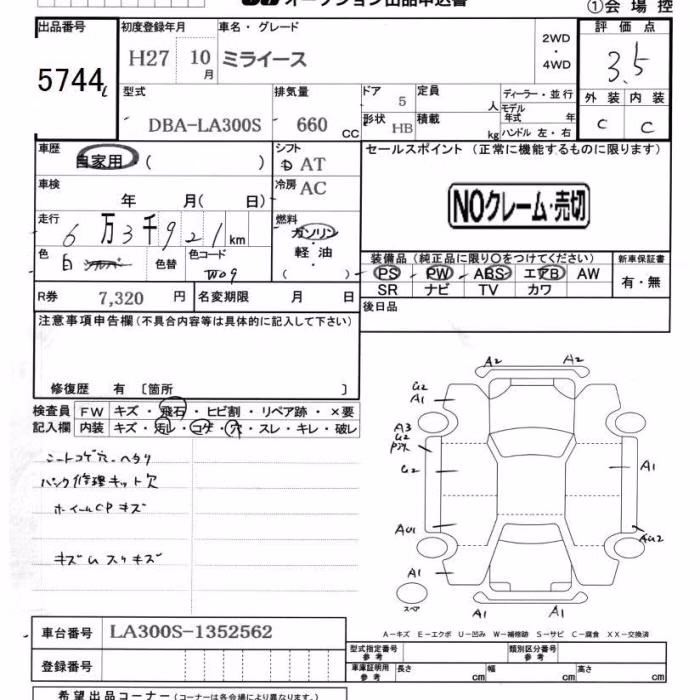 オークション出品申込書
①会場控
出品番号 初度登録年月 車名・グレード 2WD・4WD 評価点
5744 H27 10月 ミライース 3.5
型式 排気量 ドア 5 定員 人 ディーラー・並行
外装 内装
DBA-LA300S 660 CC 形状 HB 積載 kg モデル年式 年 ハンドル 左・右
C C
車歴 自家用 ( ) シフト AT セールスポイント (正常に機能するものに限ります)
車検 年 月( 日) 冷房 AC
NOクレーム・売切
走行 6万3千921km 燃料 ガソリン
軽油
( )
色 白 シルバー 色替 色コード W09
装備品 (純正品に限り○をつけてください) 新車保証書
PS PW ABS エアB AW 有・無
SR ナビ TV カワ
R券 7,320 円 名変期限 月 日 後日品
注意事項申告欄 (不具合内容等は具体的に記入して下さい)
修復歴 有 〔箇所 〕
検査員 FW キズ・飛石・ヒビ割・リペア跡・×要
記入欄 内装 キズ・汚レ・コゲ・穴・スレ・キレ・破レ
シートコゲ穴、ヘタリ
パンク修理キット欠
ホイールCPキズ
キズUスリキズ
A2 A2
U2
A1
A3
U2
U2
A1
AU1
AU2
A1
スペア
A1 A1
A－キズ E－エクボ U－凹み W－補修跡 S－サビ C－腐食 XX－交換済
車台番号 LA300S-1352562
型式指定番号 参考 類別区分番号 参考
登録番号
車庫証明用 参考 長さ cm 幅 cm 高さ cm
希望出品コーナー (コーナーは各会場により異なります。)